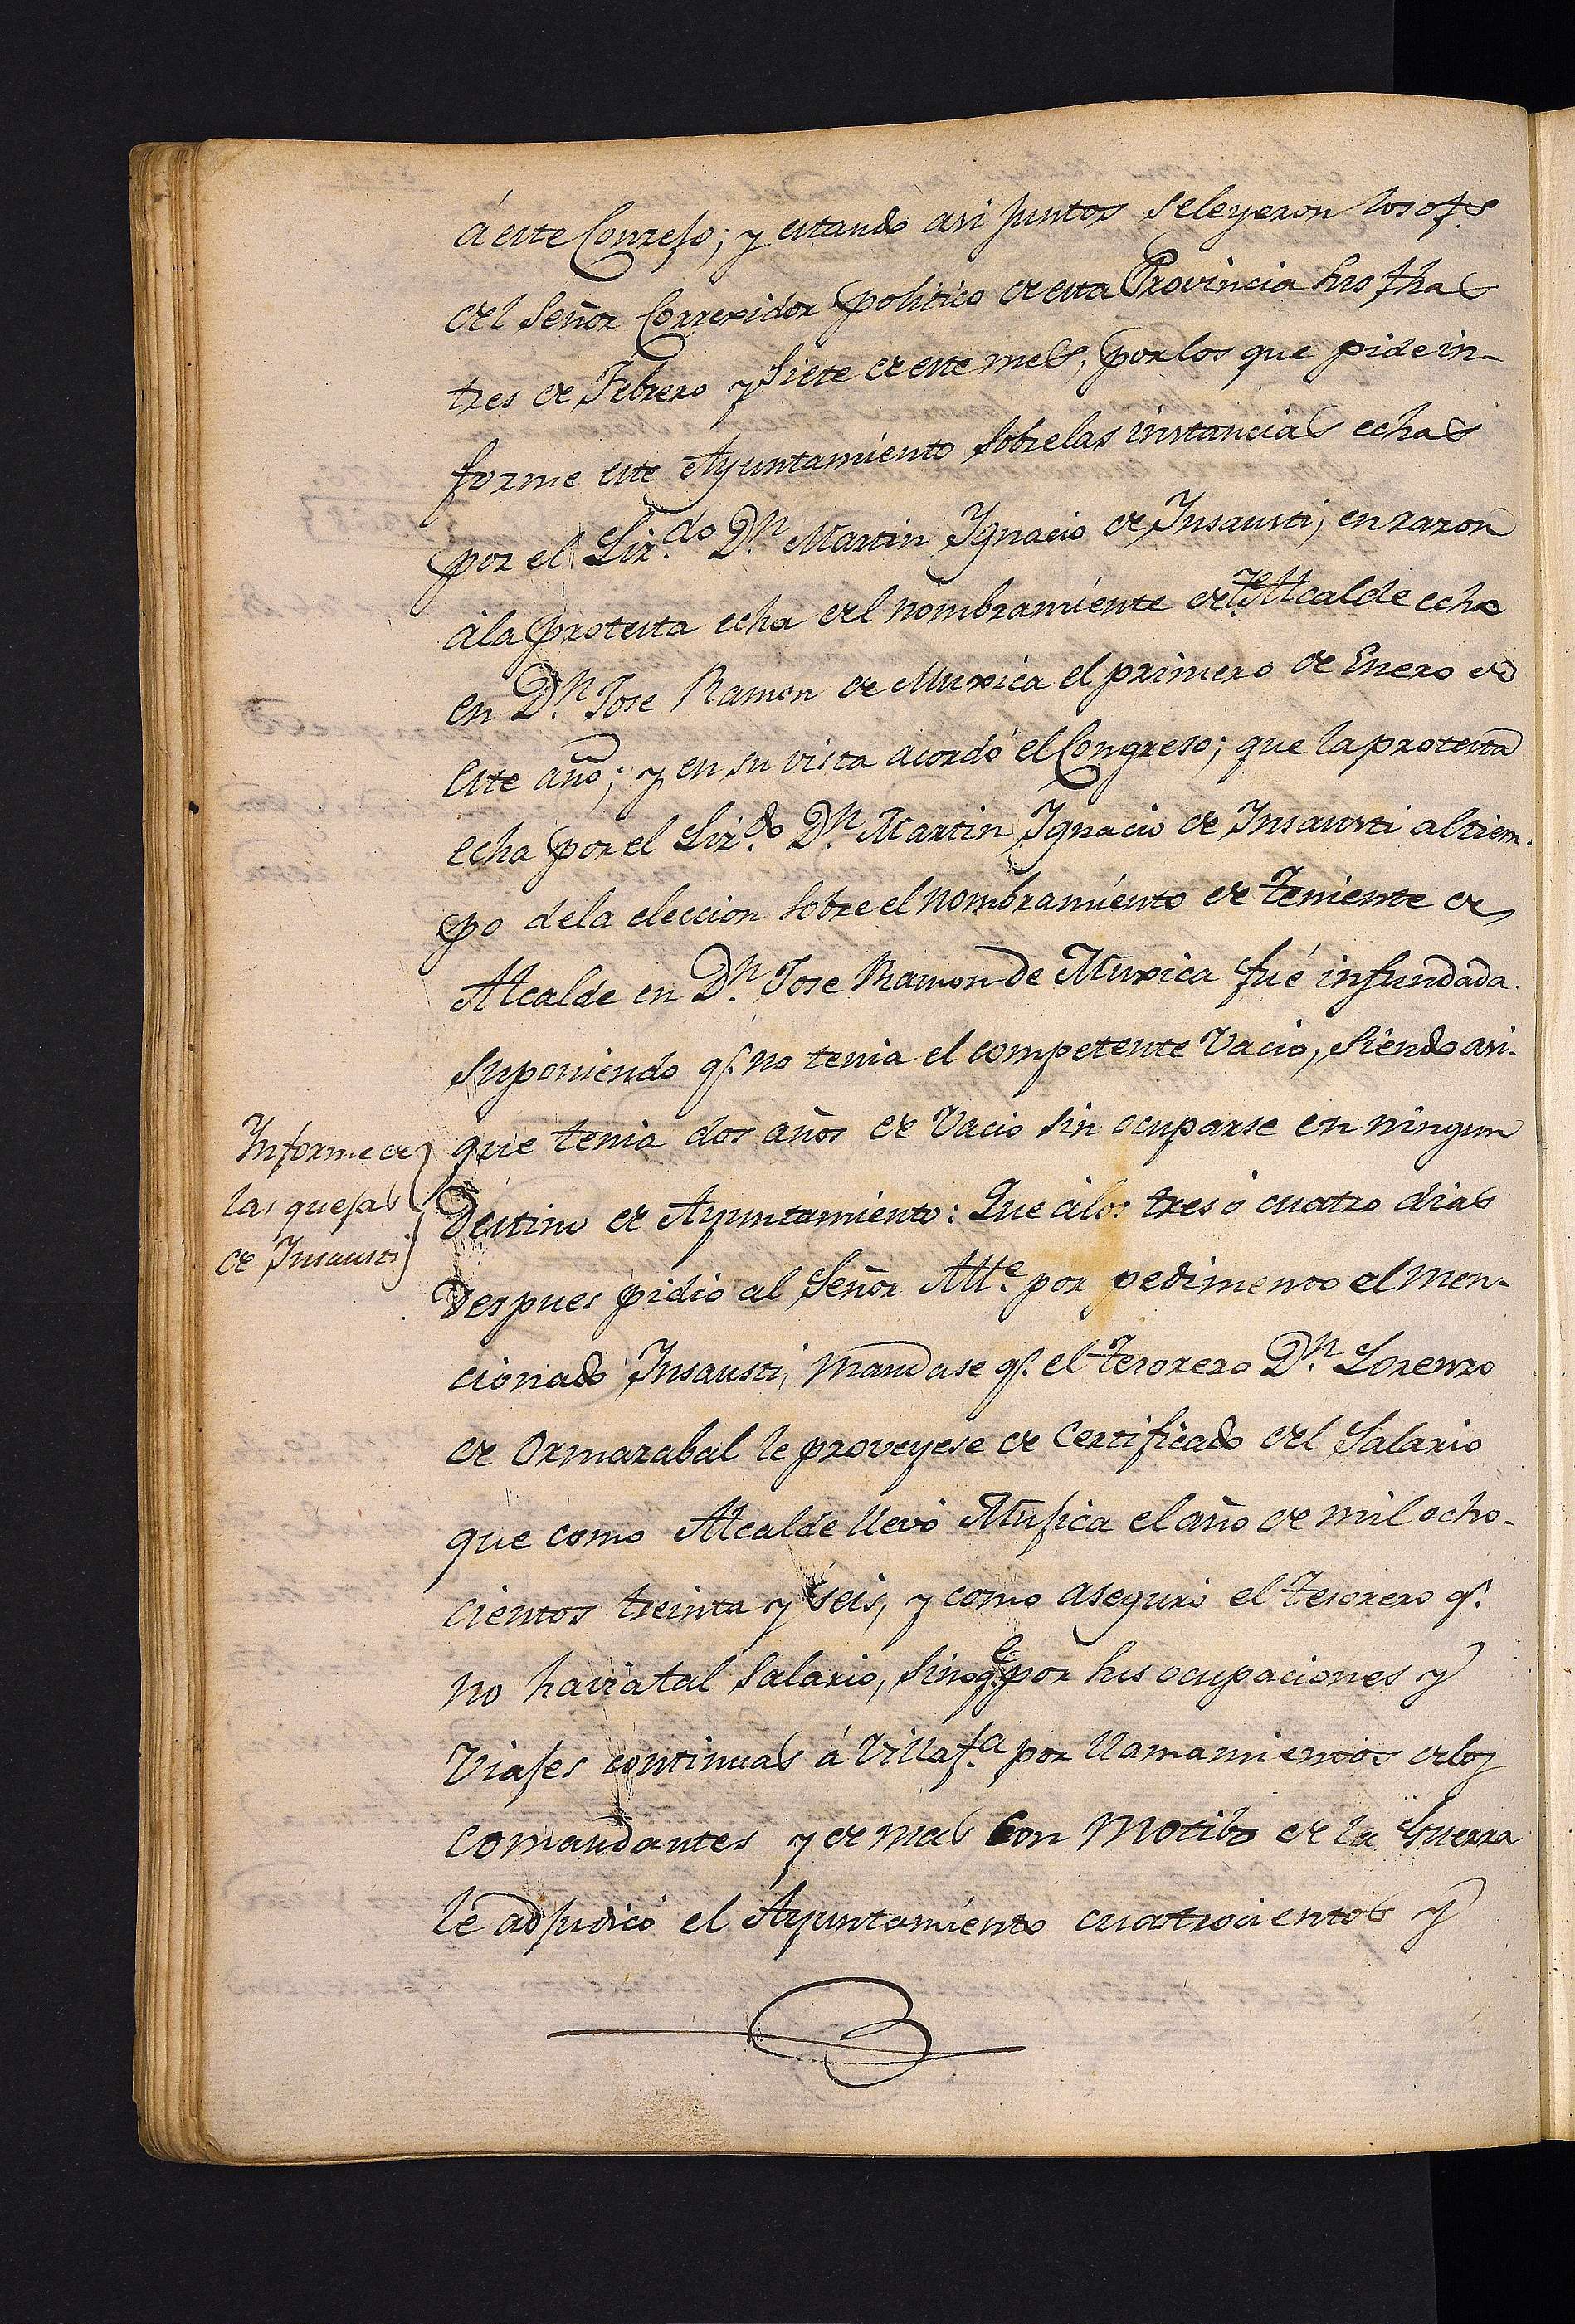 á este Conzejo; y estando asi juntos se leyeron los ofs.
del Señor Correxidor politico de esta Provincia sus fhas
tres de Febrero y Siete de este mes, por los que pide in-
forme este Ayuntamiento sobre las instancias echas
por el Liz.do D.n Martin Ygnacio de Ynsausti, en razon
á la protesta echa del nombramiento de T.e Alcalde echo
en D.n Jose Ramon de Muxica el primero de Enero de
este año; y en su vista acordó el Congreso; que la protesta
echa por el Liz.do D.n Martin Ygnacio de Insausti al tiem-
po de la eleccion sobre el nombramiento de teniente de
Alcalde en D.n Jose Ramon de Muxica fué infundada.
suponiendo q.e no tenia el competente Vacio, siendo asi
Informe de
las quejas
de Insausti
que tenia dos años de Vacio sin ocuparse en ningun
Destino de Ayuntamiento: Que á los tres ó cuatro dias
Despues pidió al Señor Alle. por pedimento el men-
cionado Insausti, mandase q.e el tesorero D.n Lorenzo
de Ormazabal le proveyese de Certificado del Salario
que como Alcalde llevó Mujica el año de mil ocho-
cientos treinta y seis, y como aseguró el tesorero q.e
no havia tal Salario, sino q.e por sus ocupaciones y
Viajes continuas á Villaf.ca por llamamientos de los
comandantes y de mas con motibo de la Guerra
le adjudicó el Ayuntamiento cuatrocientos y